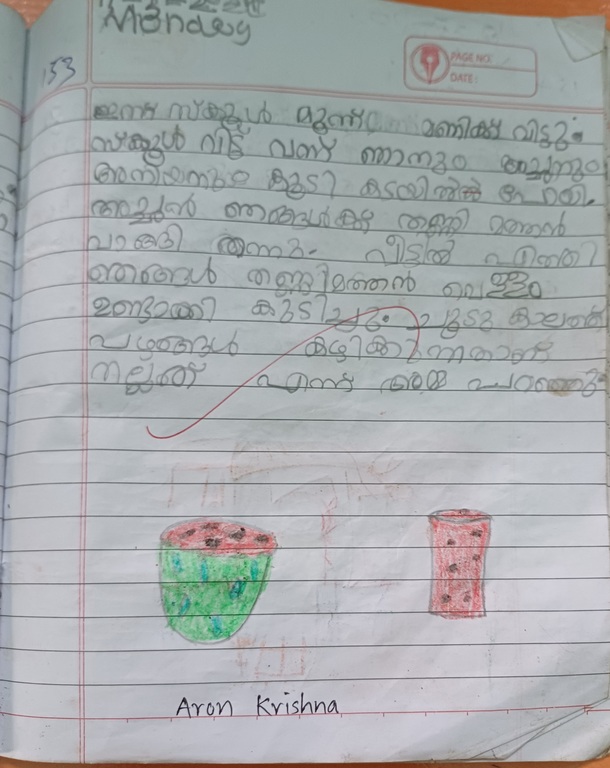 Monday
53
PAGE NO:
DATE:
ഇന്ന് സ്കൂൾ മൂന്ന് മണിക്ക് വിട്ടു.
സ്കൂൾ വിട്ട് വന്ന് ഞാനും അച്ഛനും
അനിയനും കൂടി കടയിൽ പോയി.
അച്ഛൻ ഞങ്ങൾക്കു തണ്ണി മത്തൻ
വാങ്ങി തന്നു. വീട്ടിൽ എത്തി
ഞങ്ങൾ തണ്ണിമത്തൻ വെള്ളം
ഉണ്ടാക്കി കുടിച്ചു. ചൂടു കാലത്ത്
പഴങ്ങൾ കഴിക്കുന്നതാണ്
നല്ലത് എന്ന് അമ്മ പറഞ്ഞു.
Aron Krishna